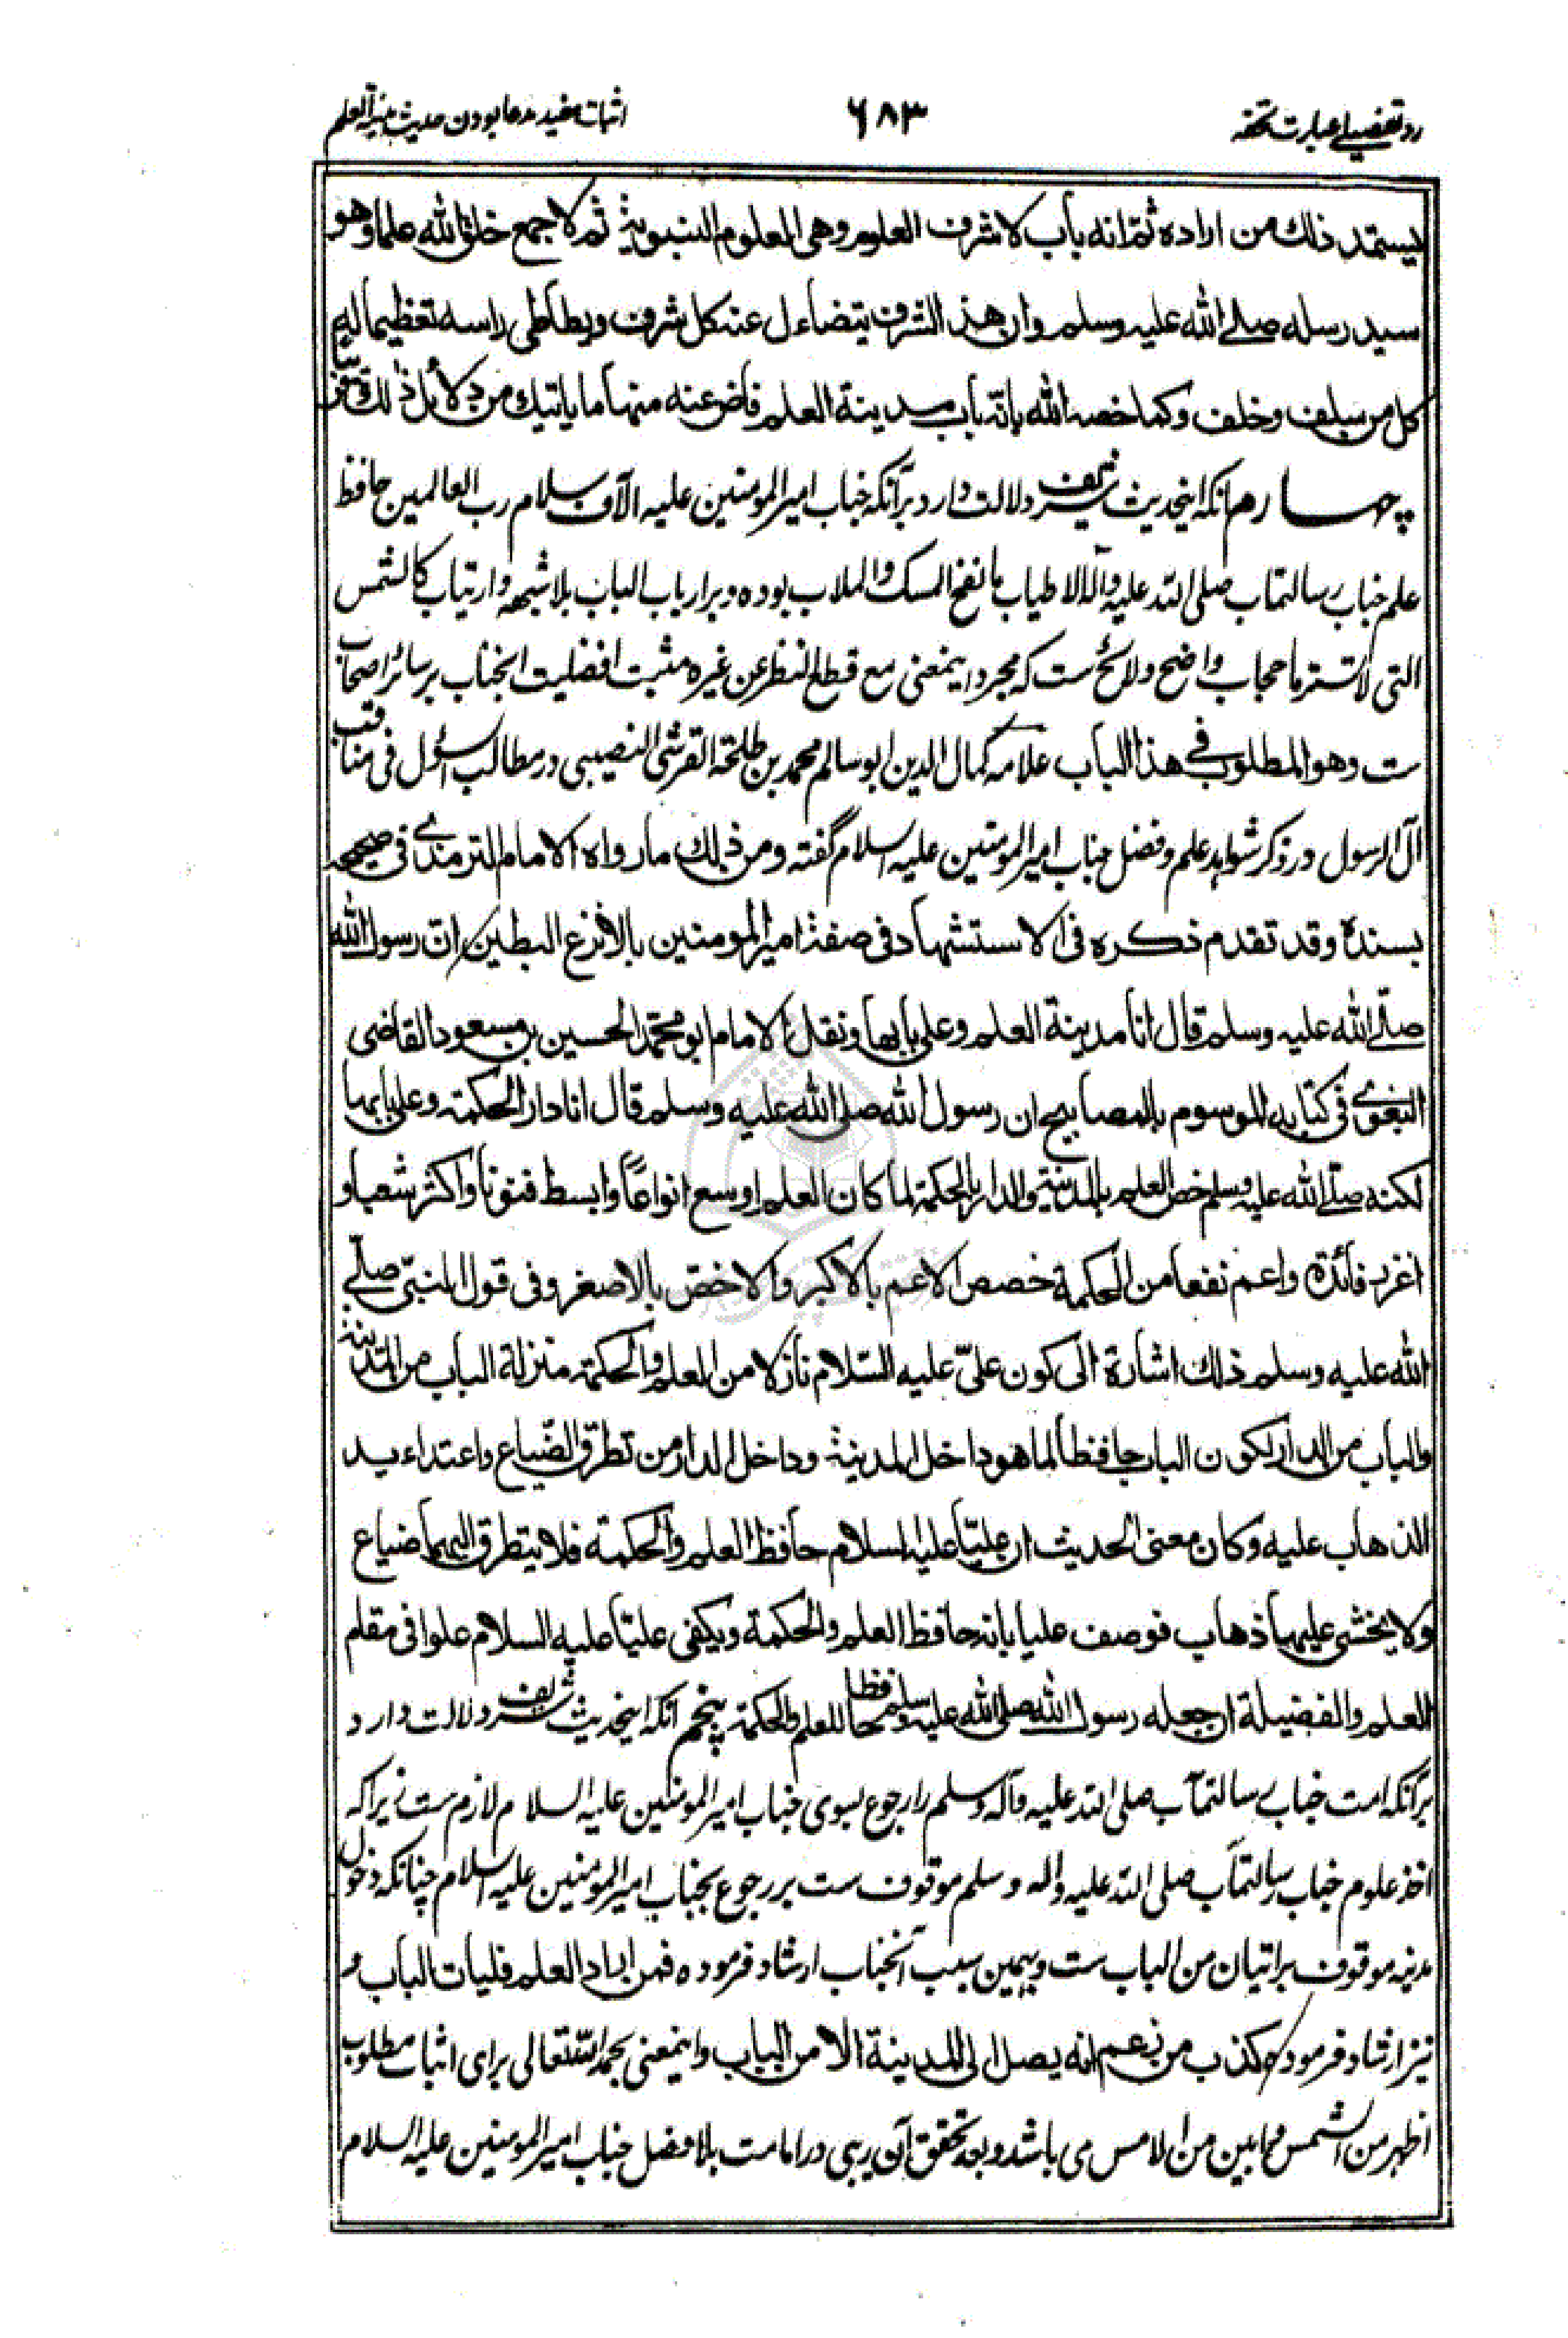 رد تفصیلے عبارت تحفہ
۶۸۳
اثبات مفید مدعا بودن حدیث مدینۃ العلم
یستمد ذلك من اراده ثم انه باب لاشرف العلوم وهی العلوم النبویة ثم لاجمع خلق الله علما وهو
سید رسله صلے الله علیه وسلم وان هذا الشرف یتضاءل عنه كل شرف ویطأطئ راسه تعظیما له
كل من سلف وخلف وكما خصه الله بانه باب مدینة العلم فاض عنه منها ما یاتیك من دلائل ذلك
چهارم آنکه این حدیث شریف دلالت دارد بر آنکه جناب امیر المومنین علیه آلاف سلام رب العالمین حافظ
علم جناب رسالتماب صلی الله علیه وآله الاطیاب ما نفخ المسك والملاب بوده و بر ارباب الباب بلا شبهه وارتیاب كالشمس
التی لا تستر ما حجاب واضح ولائح ست که مجرد اینمعنی مع قطع النظر عن غیره مثبت افضلیت آنجناب بر سائر اصحاب
ست وهو المطلوب فی هذا الباب علامه كمال الدین ابو سالم محمد بن طلحة القرشی النصیبی در مطالب السؤل فی مناقب
آل الرسول در ذکر شواهد علم و فضل جناب امیر المومنین علیه السلام گفته ومن ذلك ما رواه الامام الترمذی فی صحیحه
بسنده وقد تقدم ذكره فی الاستشهاد فی صفة امیر المومنین بالانزع البطین ان رسول الله
صلے الله علیه وسلم قال انا مدینة العلم وعلی بابها ونقل الامام ابو محمد الحسین بن مسعود القاضی
البغوی فی كتابه الموسوم بالمصابیح ان رسول الله صلی الله علیه وسلم قال انا دار الحكمة وعلی بابها
لكنه صلے الله علیه وسلم خص العلم بالمدینة والدار بالحكمة لما كان العلم اوسع انواعاً وابسط فنونا واكثر شعبا و
اغزر فائدة واعم نفعا من الحكمة خصص الاعم بالاكبر والاخص بالاصغر وفی قول النبی صلے
الله علیه وسلم ذلك اشارة الی كون علیّ علیه السّلام نازلا من العلم والحكمة منزلة الباب من المدینة
والباب من الدار لكون الباب حافظا لما هو داخل المدینة وداخل الدار من تطرق الضیاع واعتداء ید
الذهاب علیه وكان معنی الحدیث ان علیّا علیه السلام حافظ العلم والحكمة فلا یتطرق الیهما ضیاع
ولا یخشی علیهما ذهاب فوصف علیا بانه حافظ العلم والحكمة ویكفی علیّا علیه السلام علوا فی مقام
العلم والفضیلة ان جعله رسول الله صلی الله علیه وسلم حافظا للعلم والحكمة پنجم آنکه این حدیث شریف دلالت دارد
بر آنکه امت جناب رسالتمآب صلی الله علیه وآله وسلم را رجوع بسوی جناب امیر المومنین علیه السلام لازم ست زیرا که
اخذ علوم جناب رسالتمآب صلی الله علیه واله وسلم موقوف ست بر رجوع بجناب امیر المومنین علیه السلام چنانکه دخول
مدینه موقوف بر اتیان من الباب ست و بهمین سبب آنجناب ارشاد فرموده فمن اراد العلم فلیات الباب و
نیز ارشاد فرموده كذب من زعم انه یصل الی المدینة الا من الباب واینمعنی بحمد الله تعالی برای اثبات مطلوب
اظهر من الشمس وابین من الامس می باشد و بعد تحقق آن ریبی در امامت بلا فصل جناب امیر المومنین علیه السلام